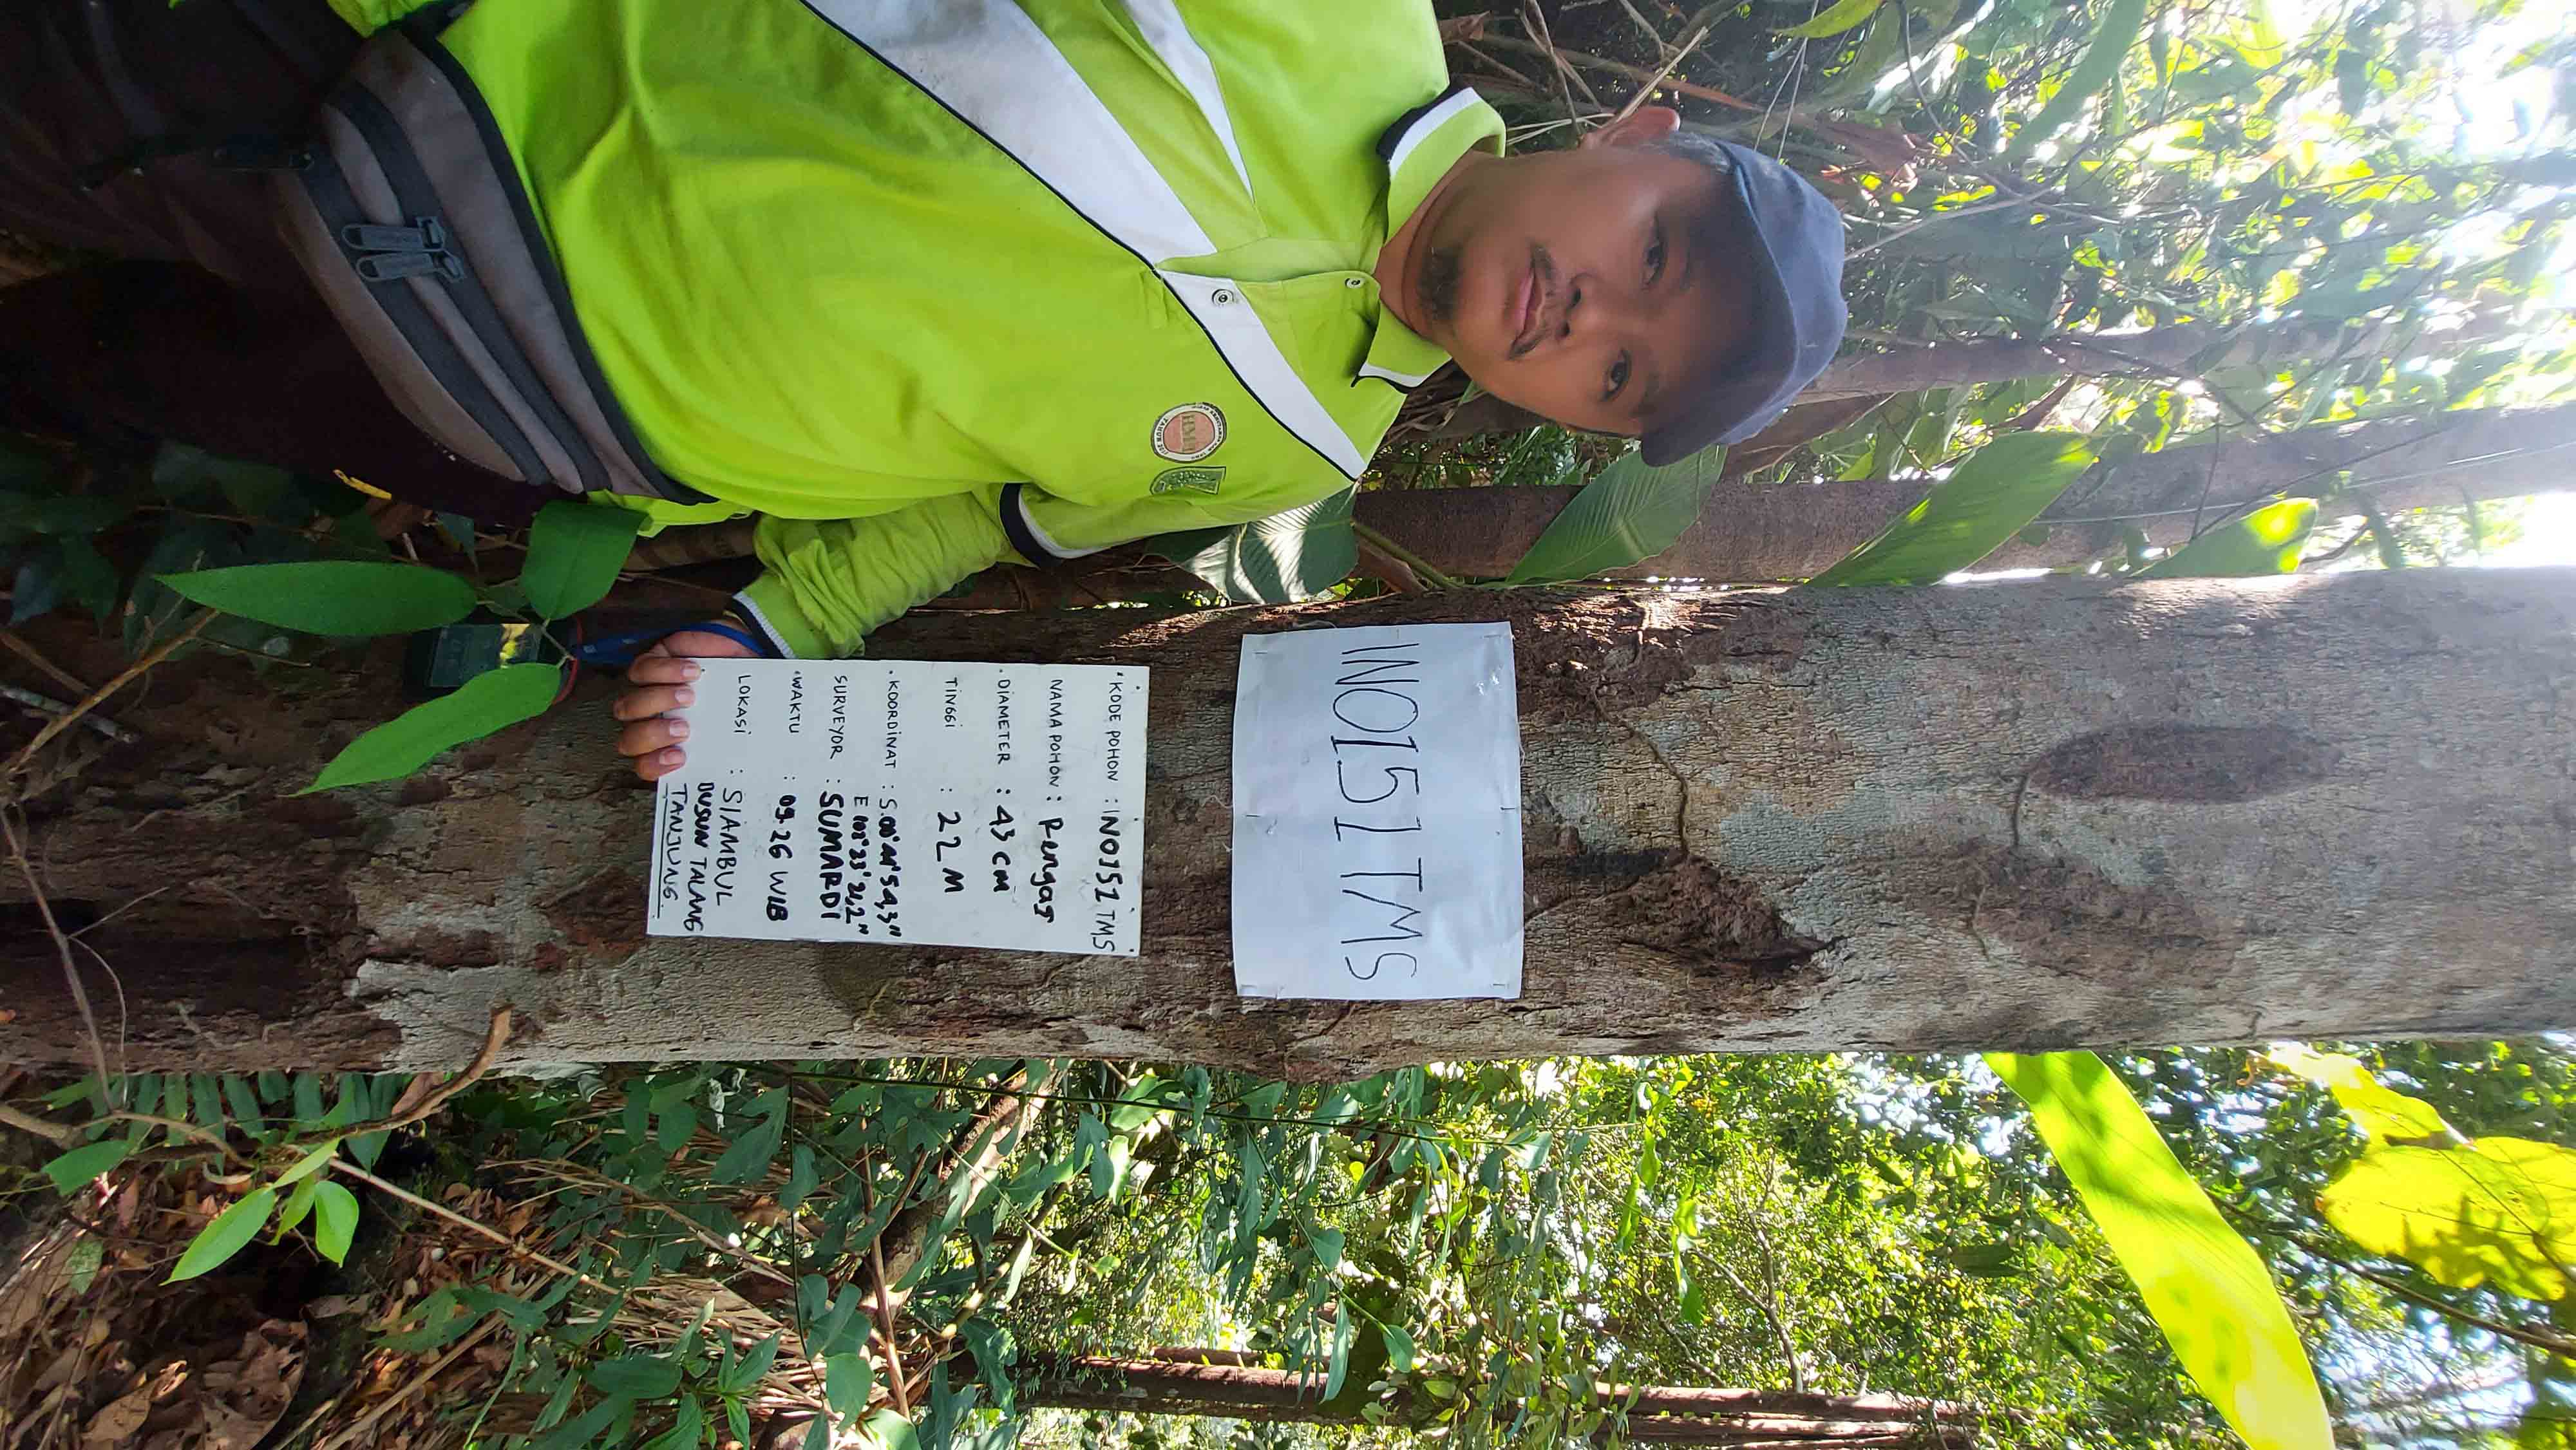 INO151 TMS
*KODE POHON : INO151 TMS
NAMA POHON : Rengas
*DIAMETER : 43 cm
TINGGI : 22 M
*KOORDINAT : S.00°41'54,3"
E 102°33'21,2"
SURVEYOR : SUMARDI
*WAKTU : 09.26 WIB
LOKASI : SIAMBUL
DUSUN TALANG
TANJUNG